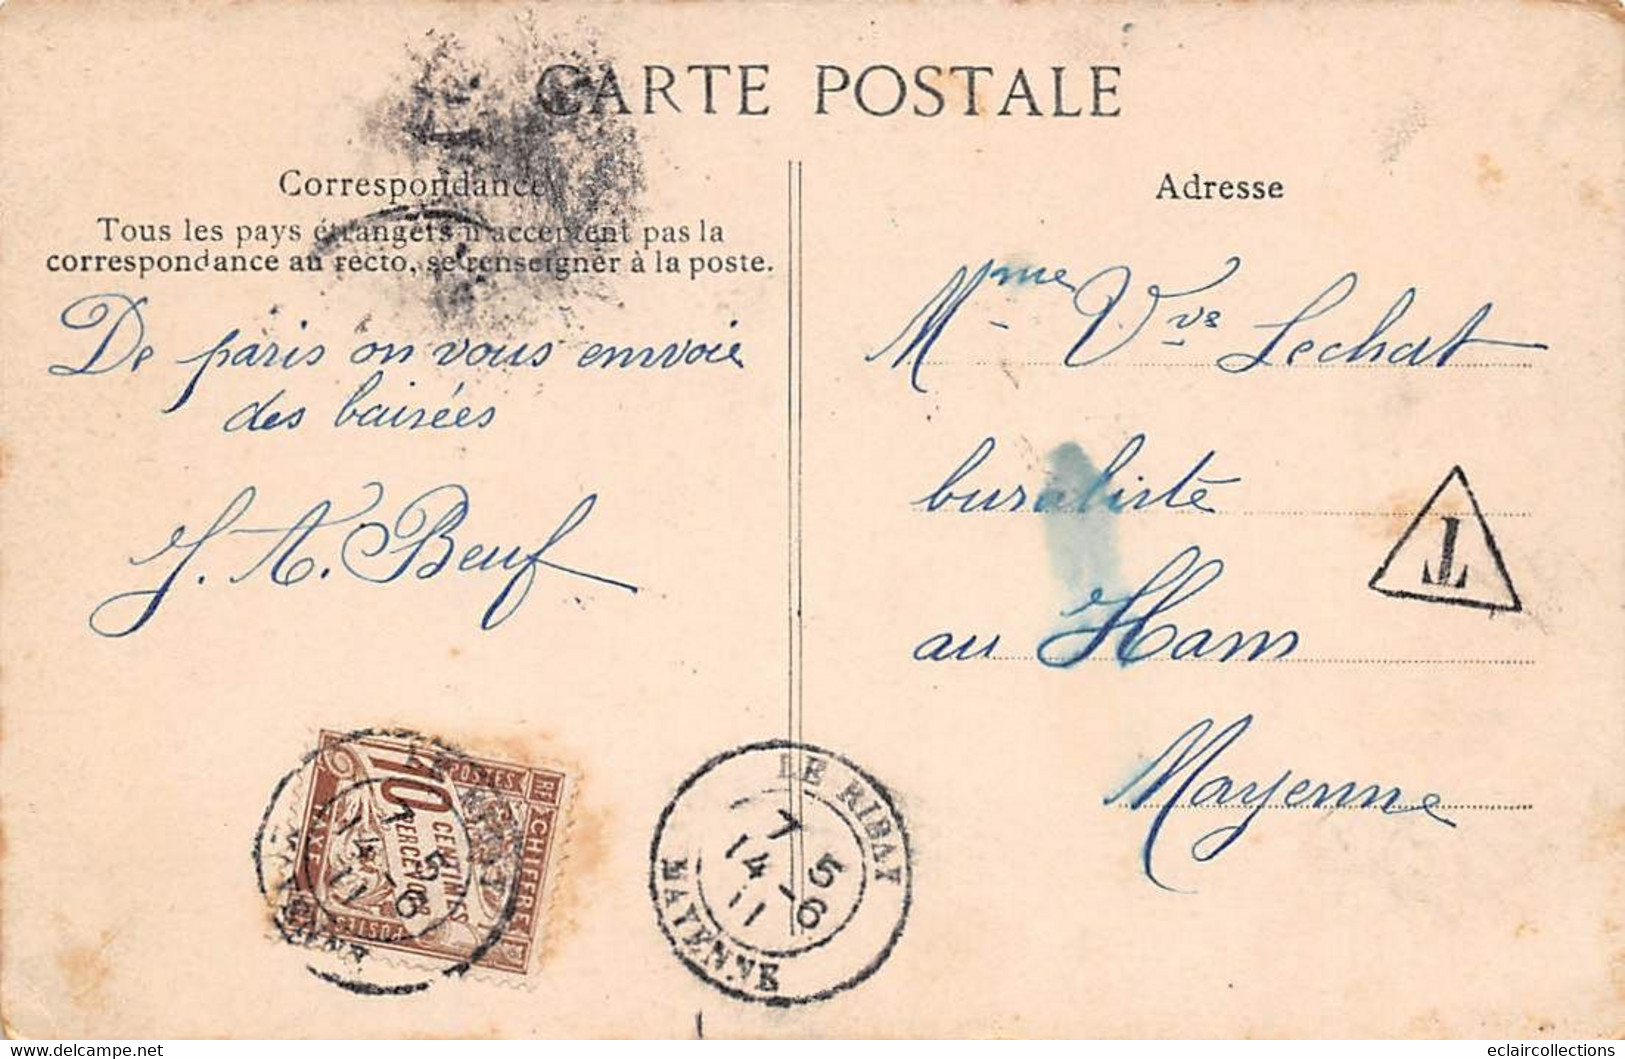 CARTE POSTALE
Correspondance
Tous les pays étrangers n'acceptent pas la
correspondance au recto, se renseigner à la poste.
De paris on vous envoie
des baisées
J. A. Beuf
Adresse
Mme Vve Lechat
buraliste
au Ham
Mayenne
T
10 CENTIMES
A PERCEVOIR
POSTES
RF
CHIFFRE
TAXE
POSTES
MAYENNE
7 5
14 - 6
11
LE RIBAY
7 5
14 - 6
11
MAYENNE
eclaircollections
www.delcampe.net